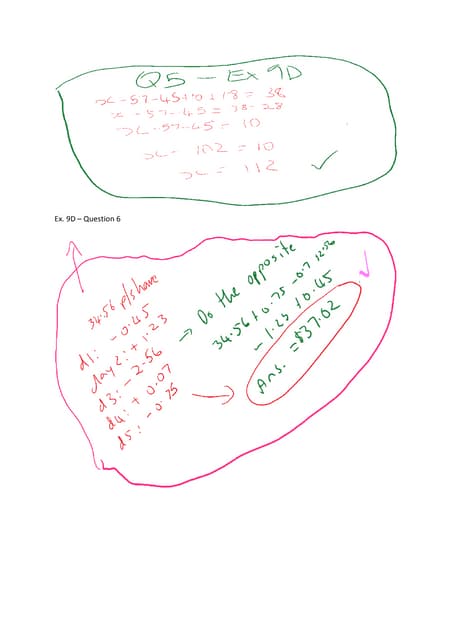 Q5 - Ex 9D
x - 57 - 45 + 10 + 18 = 38
x - 57 - 45 = 38 - 28
x - 57 - 45 = 10
x - 102 = 10
x = 112
Ex. 9D – Question 6
34.56 p/share
d1: - 0.45
day 2: + 1.23
d3: - 2.56
d4: + 0.07
d5: - 0.75
→ Do the opposite
34.56 + 0.75 - 0.7 + 2.56
- 1.23 + 0.45
Ans. = $37.02